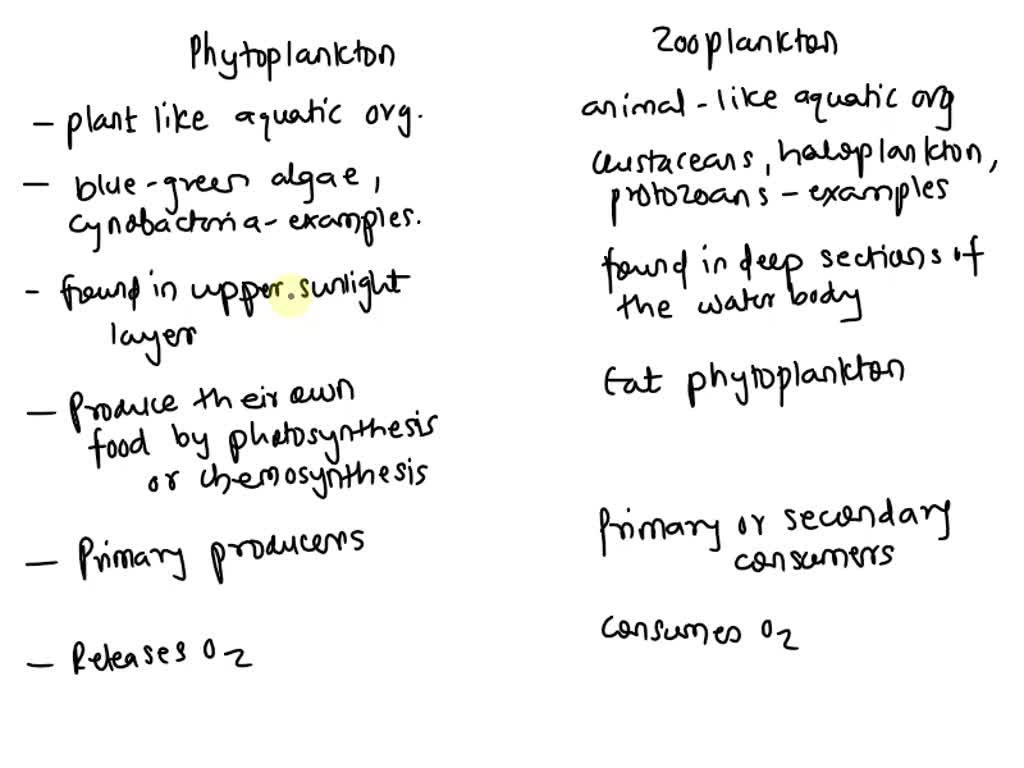 Phytoplankton
- plant like aquatic org.
- blue-green algae,
cynobacteria - examples.
- found in upper sunlight
layer
- Produce their own
food by photosynthesis
or chemosynthesis
- Primary producers
- Releases O2
Zooplankton
animal-like aquatic org
crustaceans, haloplankton,
protozoans - examples
found in deep sections of
the water body
Eat phytoplankton
Primary or secondary
consumers
consumes O2